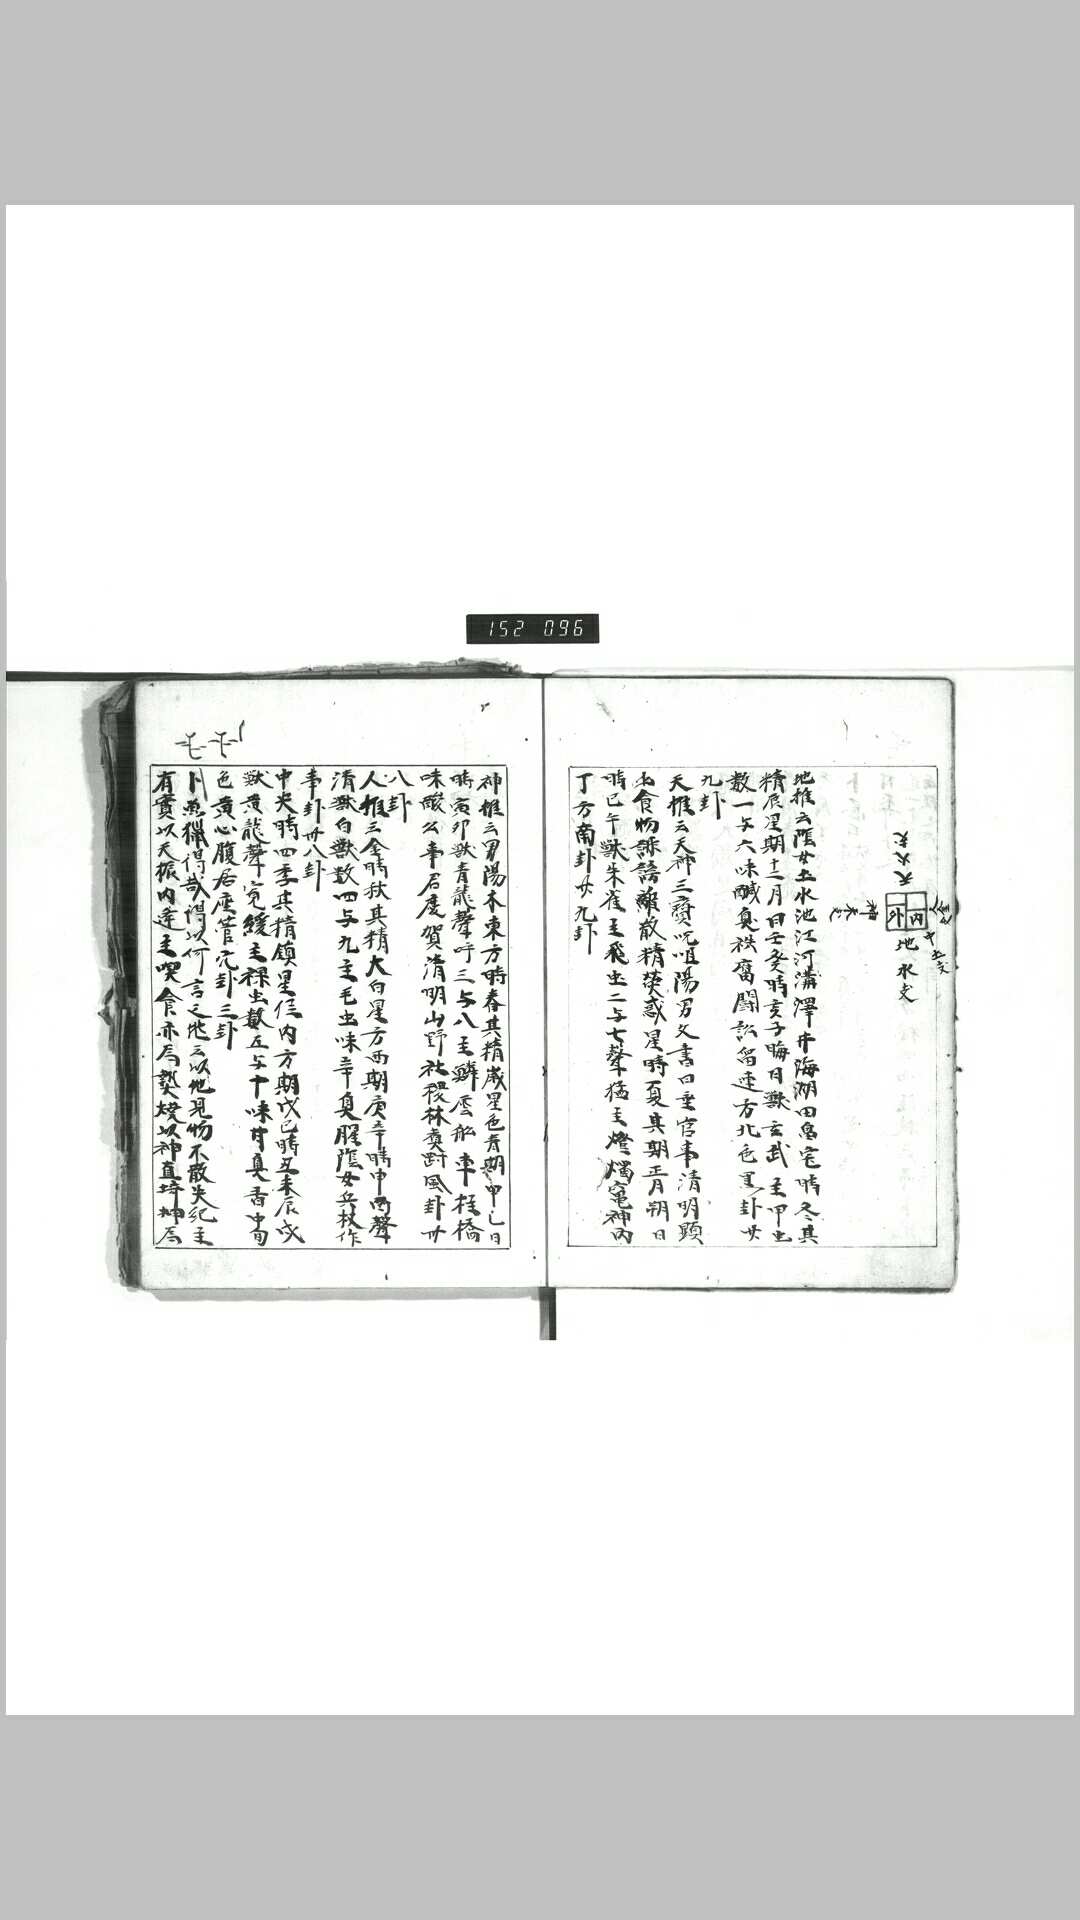 152 096
天火支
内
外
地水支
地推云陰女土水池江河溝澤井海湖田畠宅時冬其
精辰星期十二月日壬癸時亥子晦日獣玄武主甲虫
数一与六味醎臭秩腐闘訟留連方北色黒卦廿
九卦
天推云天神三寶呪咀陽男文書口舌官事清明顕
出食物誹謗離散精熒惑星時夏其期正月朔日
時巳午獣朱雀主飛虫二与七聲猛主燈燭竈神丙
丁方南卦廿九卦
神推云男陽木東方時春其精歳星色青期甲乙日
時寅卯獣青龍聲呼三与八主鱗虫船車柱橋
味酸公事君慶賀清明山野社稷林 風卦廿
八卦
人推云金時秋其精大白星方西期庚辛時申酉聲
清獣白獣数四与九主毛虫味辛臭腥陰女兵杖作
事卦廿八卦
中央時四季其精鎮星位内方期戊己時丑未辰戌
獣黄龍聲寛緩主裸虫数五与十味甘臭香中旬
色黄心腹居座管 卦三卦
卜魚獵得哉得以何言之地云以他見物不散失紀主
有實以天振内達主喫食亦為 焼以神直 神為